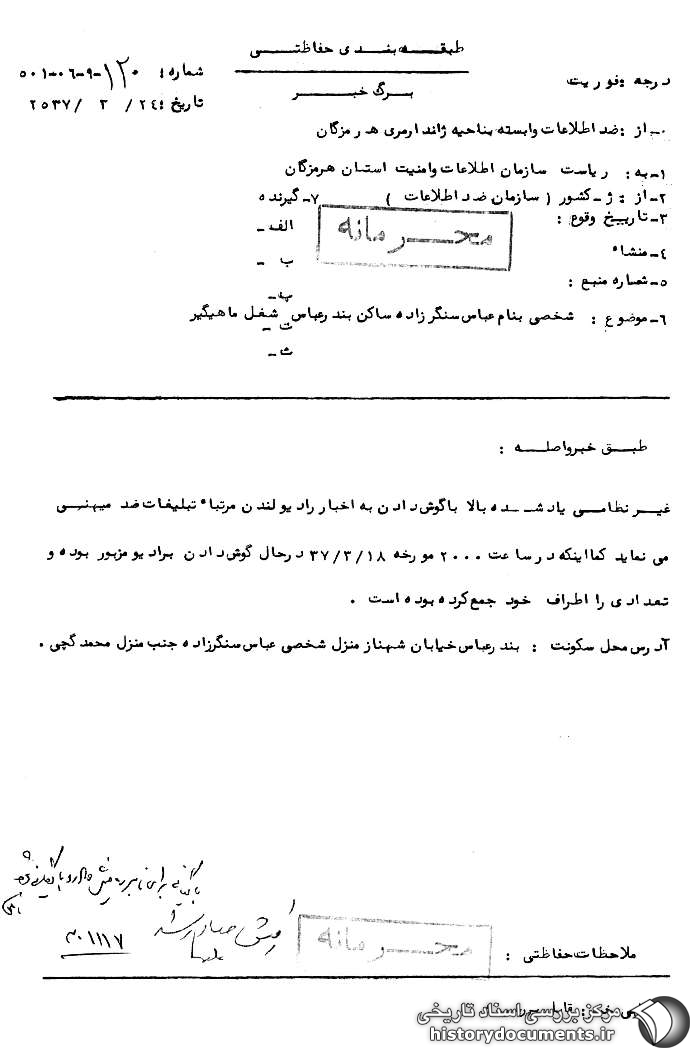 طبقه بندی حفاظتی
درجه فوریت
شماره: ۱۲۰-۹-۰۶-۵۰۱
برگ خبر
تاریخ: ۲۴/ ۳ /۲۵۳۷
۰-از :ضد اطلاعات وابسته بناحیه ژاندارمری هرمزگان
۱-به: ریاست سازمان اطلاعات وامنیت استان هرمزگان
۲-از : ژ-کشور ( سازمان ضد اطلاعات )
۷-گیرنده
۳-تاریخ وقوع :
الف-
محرمانه
۴-منشاء
ب -
۵-شماره منبع :
پ-
۶-موضوع : شخصی بنام عباس سنگرزاده ساکن بندرعباس شغل ماهیگیر
ت -
ث -
طبق خبرواصله :
غیرنظامی یادشده بالا باگوش دادن به اخبار رادیو لندن مرتباء تبلیغات ضد میهنی
می نماید کمااینکه در ساعت ۲۰۰۰ مورخه ۳۷/۳/۱۸ درحال گوش دادن برادیو مزبور بوده و
تعدادی را اطراف خود جمع کرده بوده است .
آدرس محل سکونت : بندرعباس خیابان شهناز منزل شخصی عباس سنگرزاده جنب منزل محمد گچی .
۳۰۱۱۱۷
محرمانه
ملاحظات حفاظتی :
مرکز بررسی اسناد تاریخی
historydocuments.ir